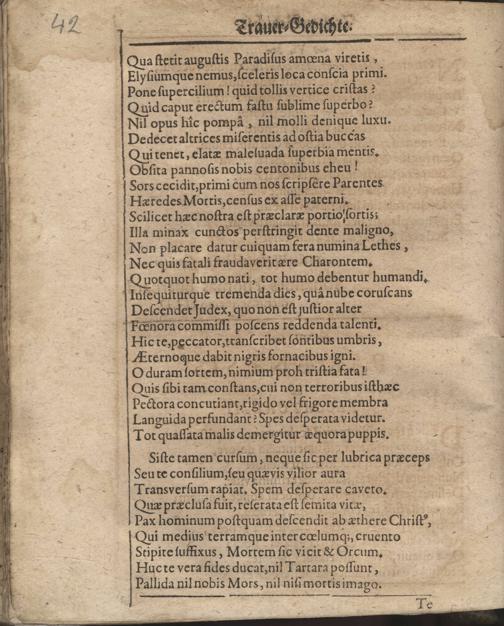 42
Trauer-Gedichte.
Qua stetit augustis Paradisus amœna viretis,
Elysiumque nemus, sceleris loca conscia primi.
Pone supercilium! quid tollis vertice cristas?
Quid caput erectum fastu sublime superbo?
Nil opus hîc pompâ, nil molli denique luxu.
Dedecet altrices miserentis ad ostia buccas
Qui tenet, elatæ malesuada superbia mentis.
Obsita pannosis nobis centonibus eheu!
Sors cecidit, primi cum nos scripsêre Parentes
Hæredes Mortis, census ex asse paterni.
Scilicet hæc nostra est præclaræ portio, sortis;
Illa minax cunctos perstringit dente maligno,
Non placare datur cuiquam fera numina Lethes,
Nec quis fatali fraudaverit ære Charontem.
Quotquot humo nati, tot humo debentur humandi.
Insequiturque tremenda dies, quâ nube coruscans
Descendet Judex, quo non est justior alter
Fœnora commissi poscens reddenda talenti.
Hic te, peccator, transcribet sontibus umbris,
Æternoque dabit nigris fornacibus igni.
O duram sortem, nimium proh tristia fata!
Quis sibi tam constans, cui non terroribus isthæc
Pectora concutiant, rigido vel frigore membra
Languida perfundant? Spes desperata videtur.
Tot quassata malis demergitur æquora puppis.
Siste tamen cursum, neque sic per lubrica præceps
Seu te consilium, seu quævis vilior aura
Transversum rapiat. Spem desperare caveto.
Quæ præclusa fuit, reserata est semita vitæ,
Pax hominum postquam descendit ab æthere Christ⁹,
Qui medius terramque inter cœlumq;, cruento
Stipite suffixus, Mortem sic vicit & Orcum.
Huc te vera fides ducat, nil Tartara possunt,
Pallida nil nobis Mors, nil nisi mortis imago.
Te